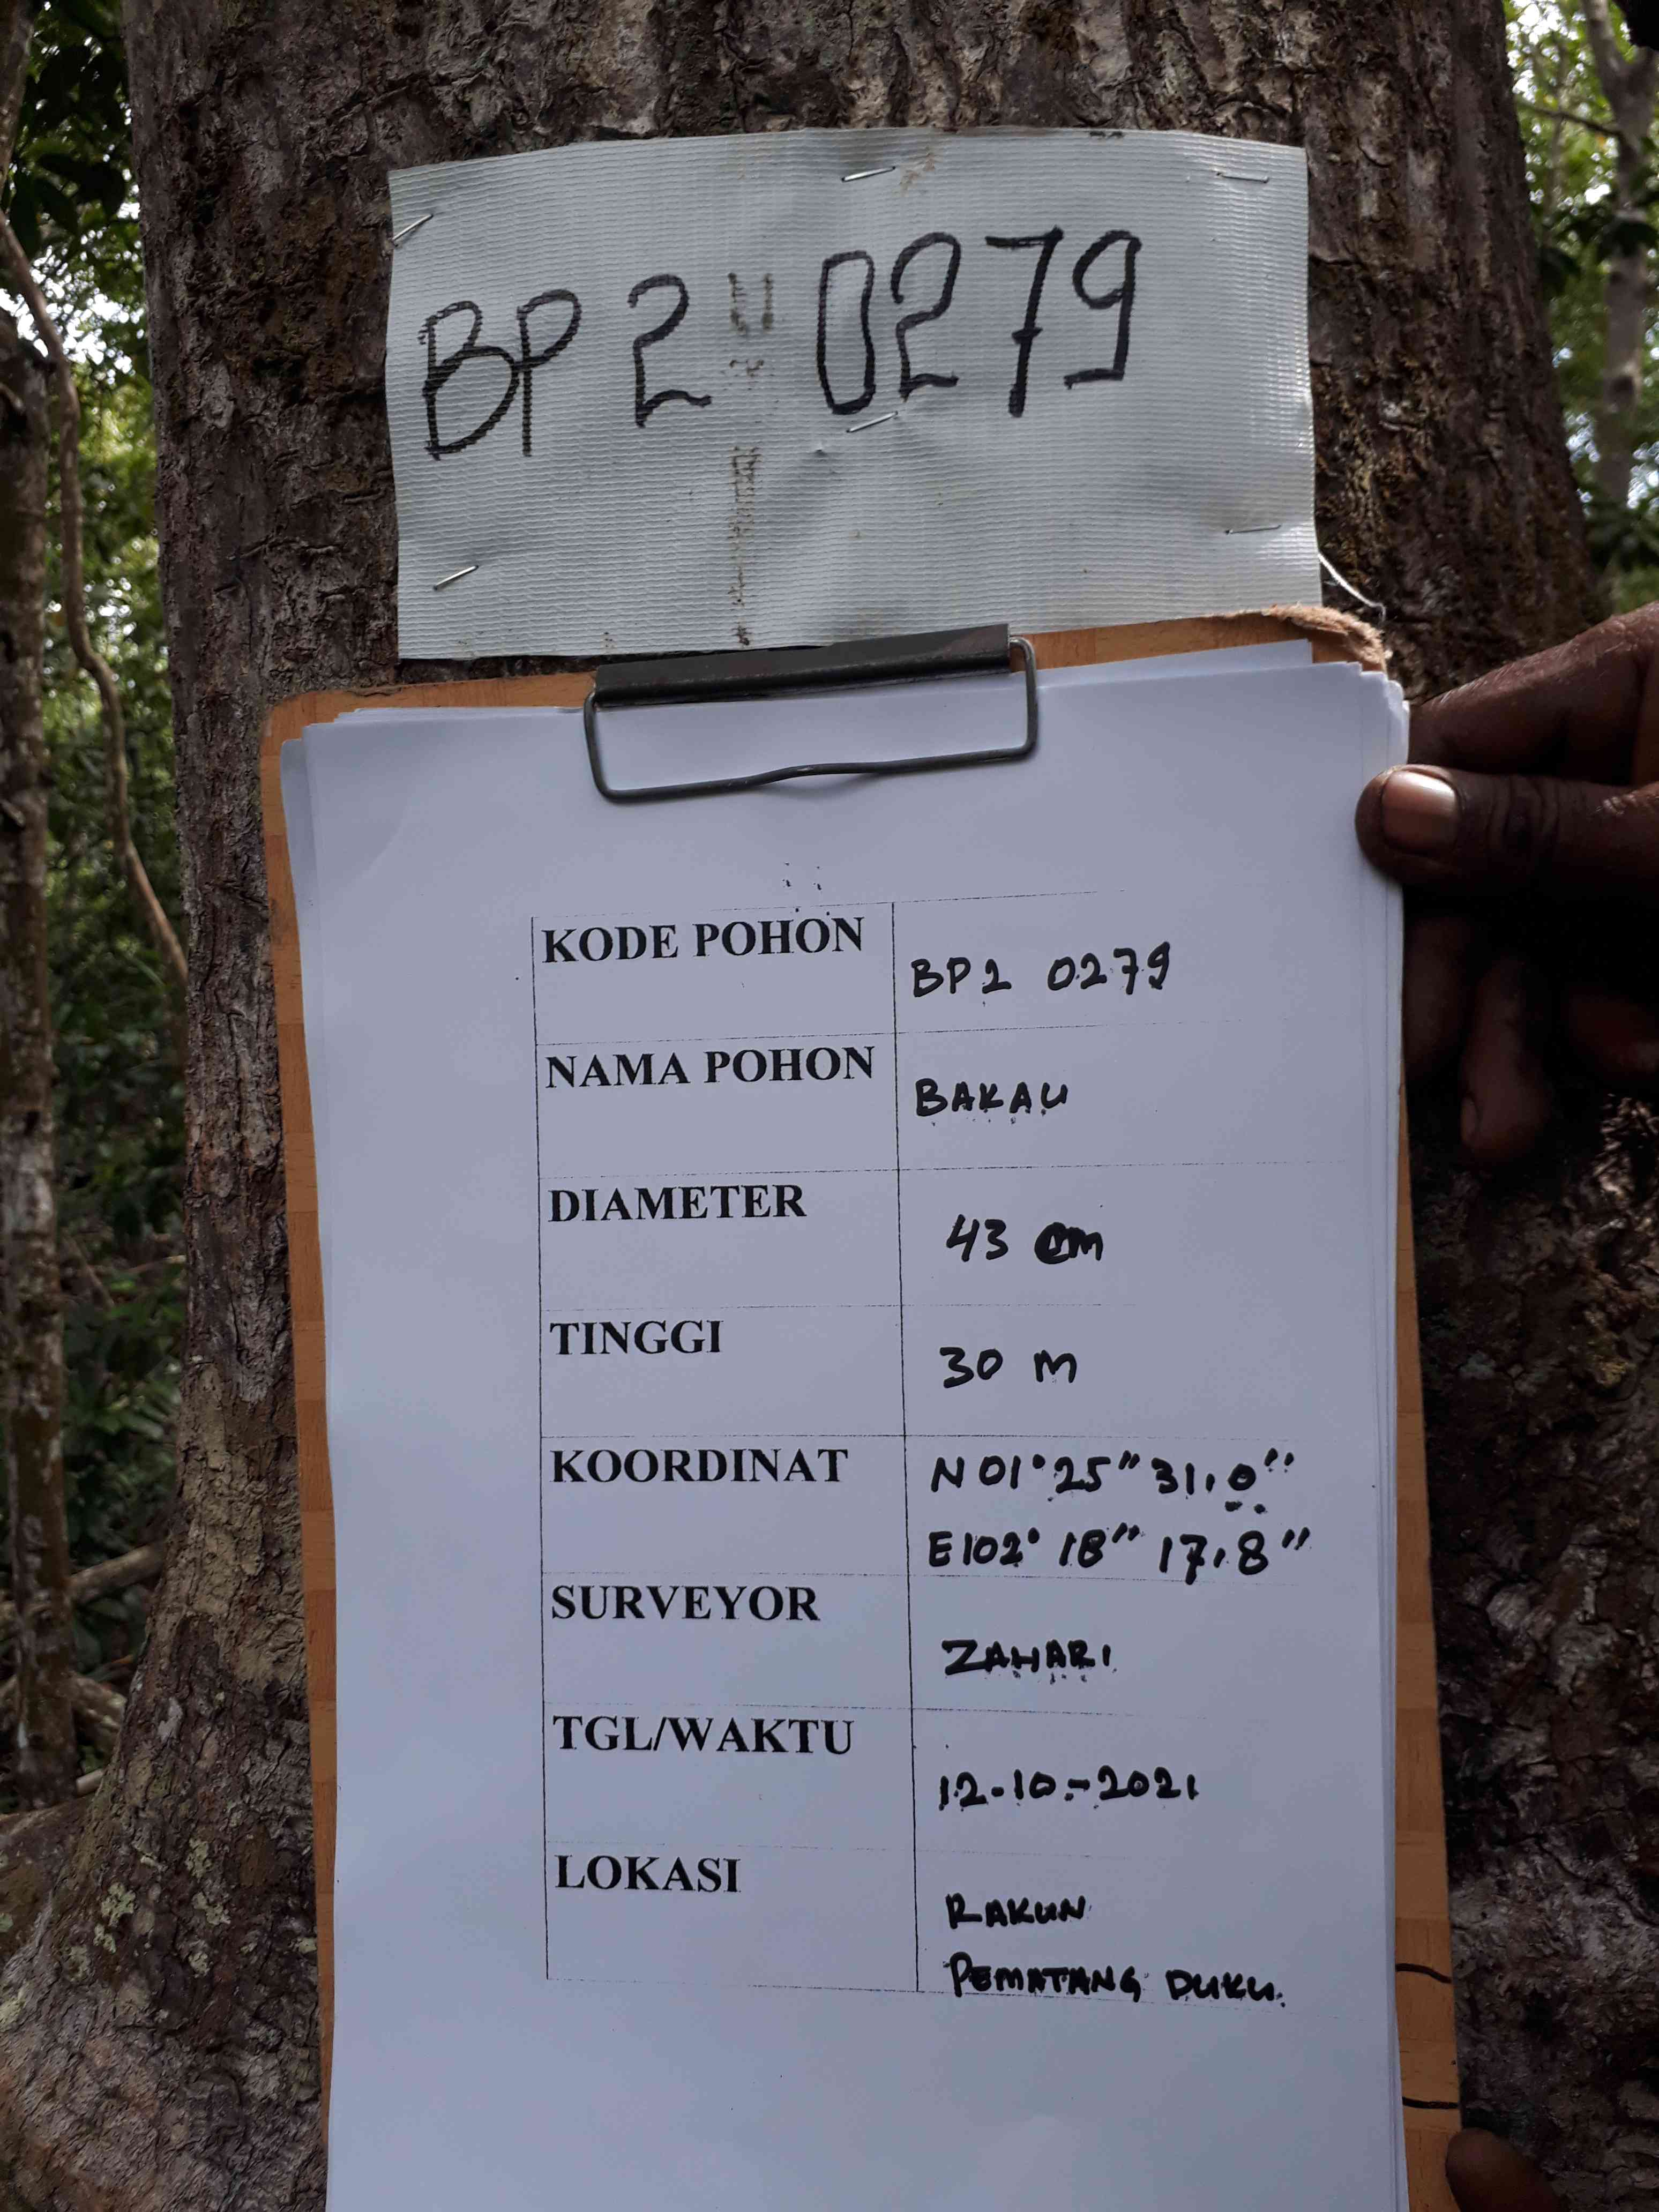 BP2 0279
KODE POHON
BP2 0279
NAMA POHON
BAKAU
DIAMETER
43 cm
TINGGI
30 M
KOORDINAT
N 01° 25" 31.0"
E 102° 18" 17.8"
SURVEYOR
ZAHARI
TGL/WAKTU
12-10-2021
LOKASI
RAKUN
PEMATANG DUKU.